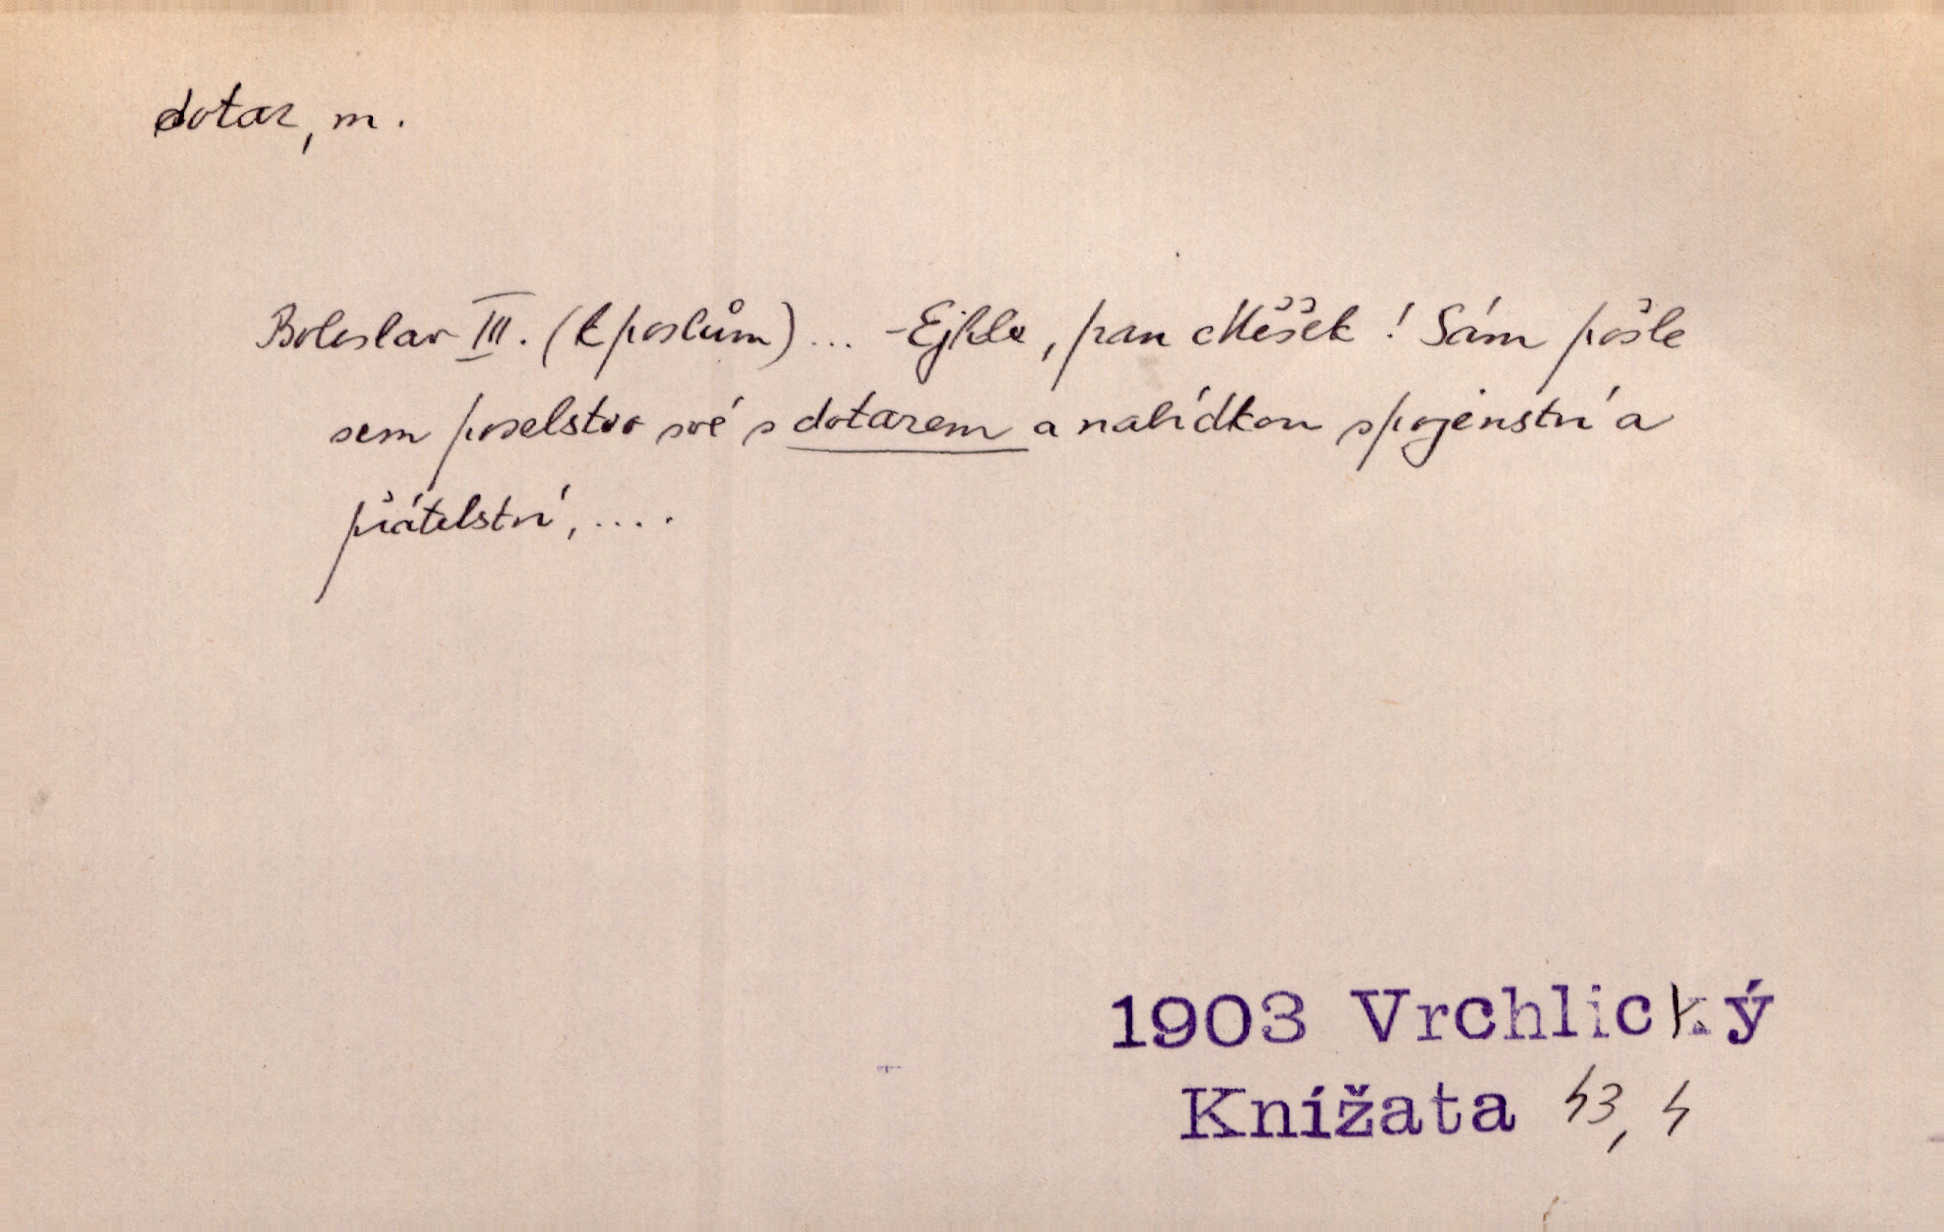 dotaz, m.
Boleslav III. (k poslům)... - Ejhle, pan Měšek! Sám pošle
sem poselstvo své s dotazem a nabídkou spojenství a
přátelství, ....
1903 Vrchlický
Knížata 43, 4